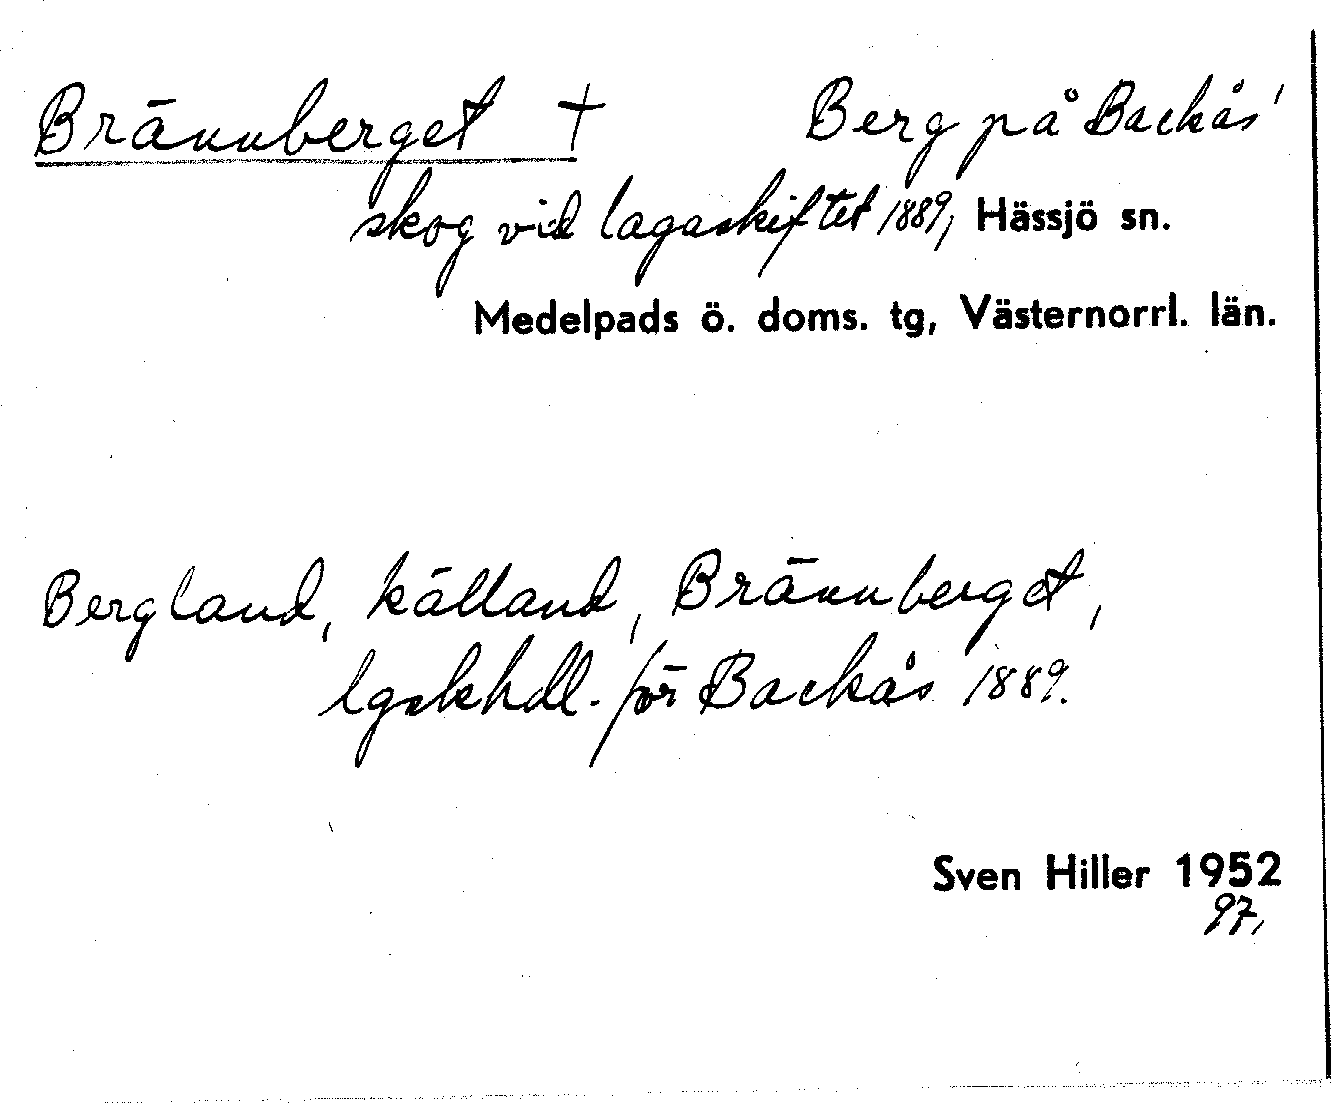 Brännberget † Berg på Backås'
skog vid lagaskiftet 1889, Hässjö sn.
Medelpads ö. doms. tg, Västernorrl. län.
Bergland, källand, Brännberget,
lgskhdl. för Backås 1889.
Sven Hiller 1952
97,